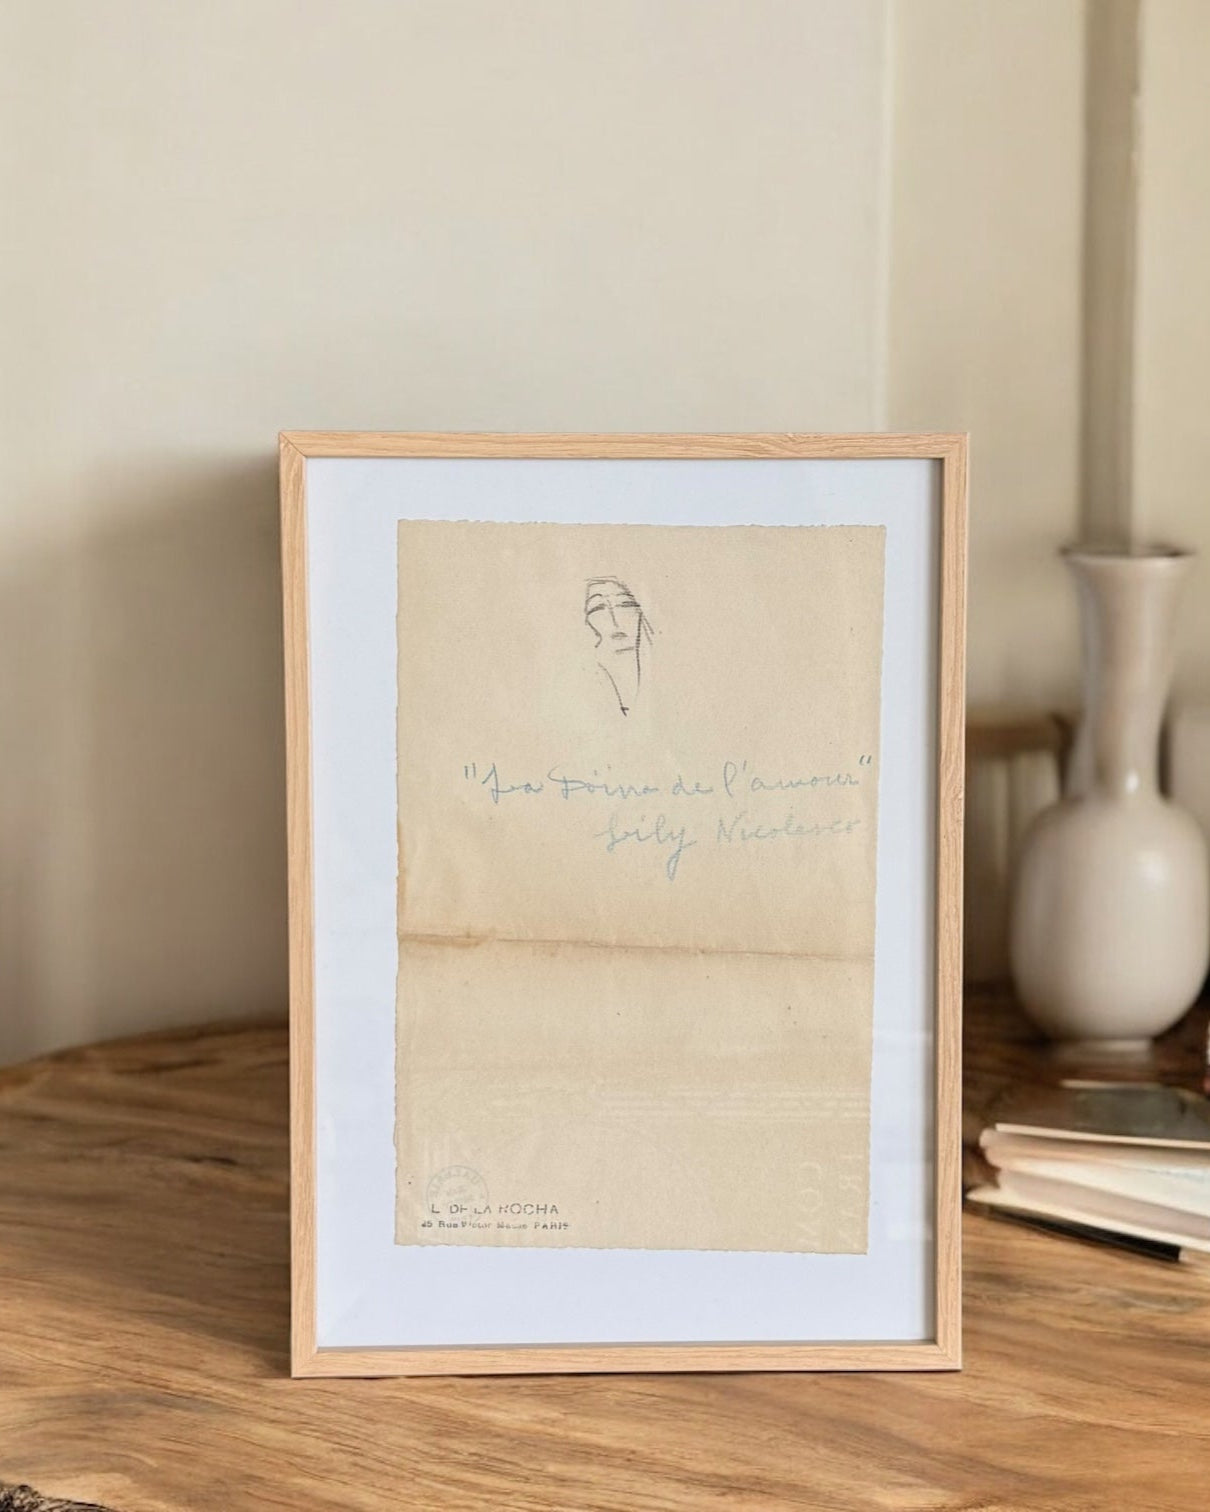 "La Doïna de l'amour"
Lily Nicolesco
L. DE LA ROCHA
25 Rue Victor Massé PARIS